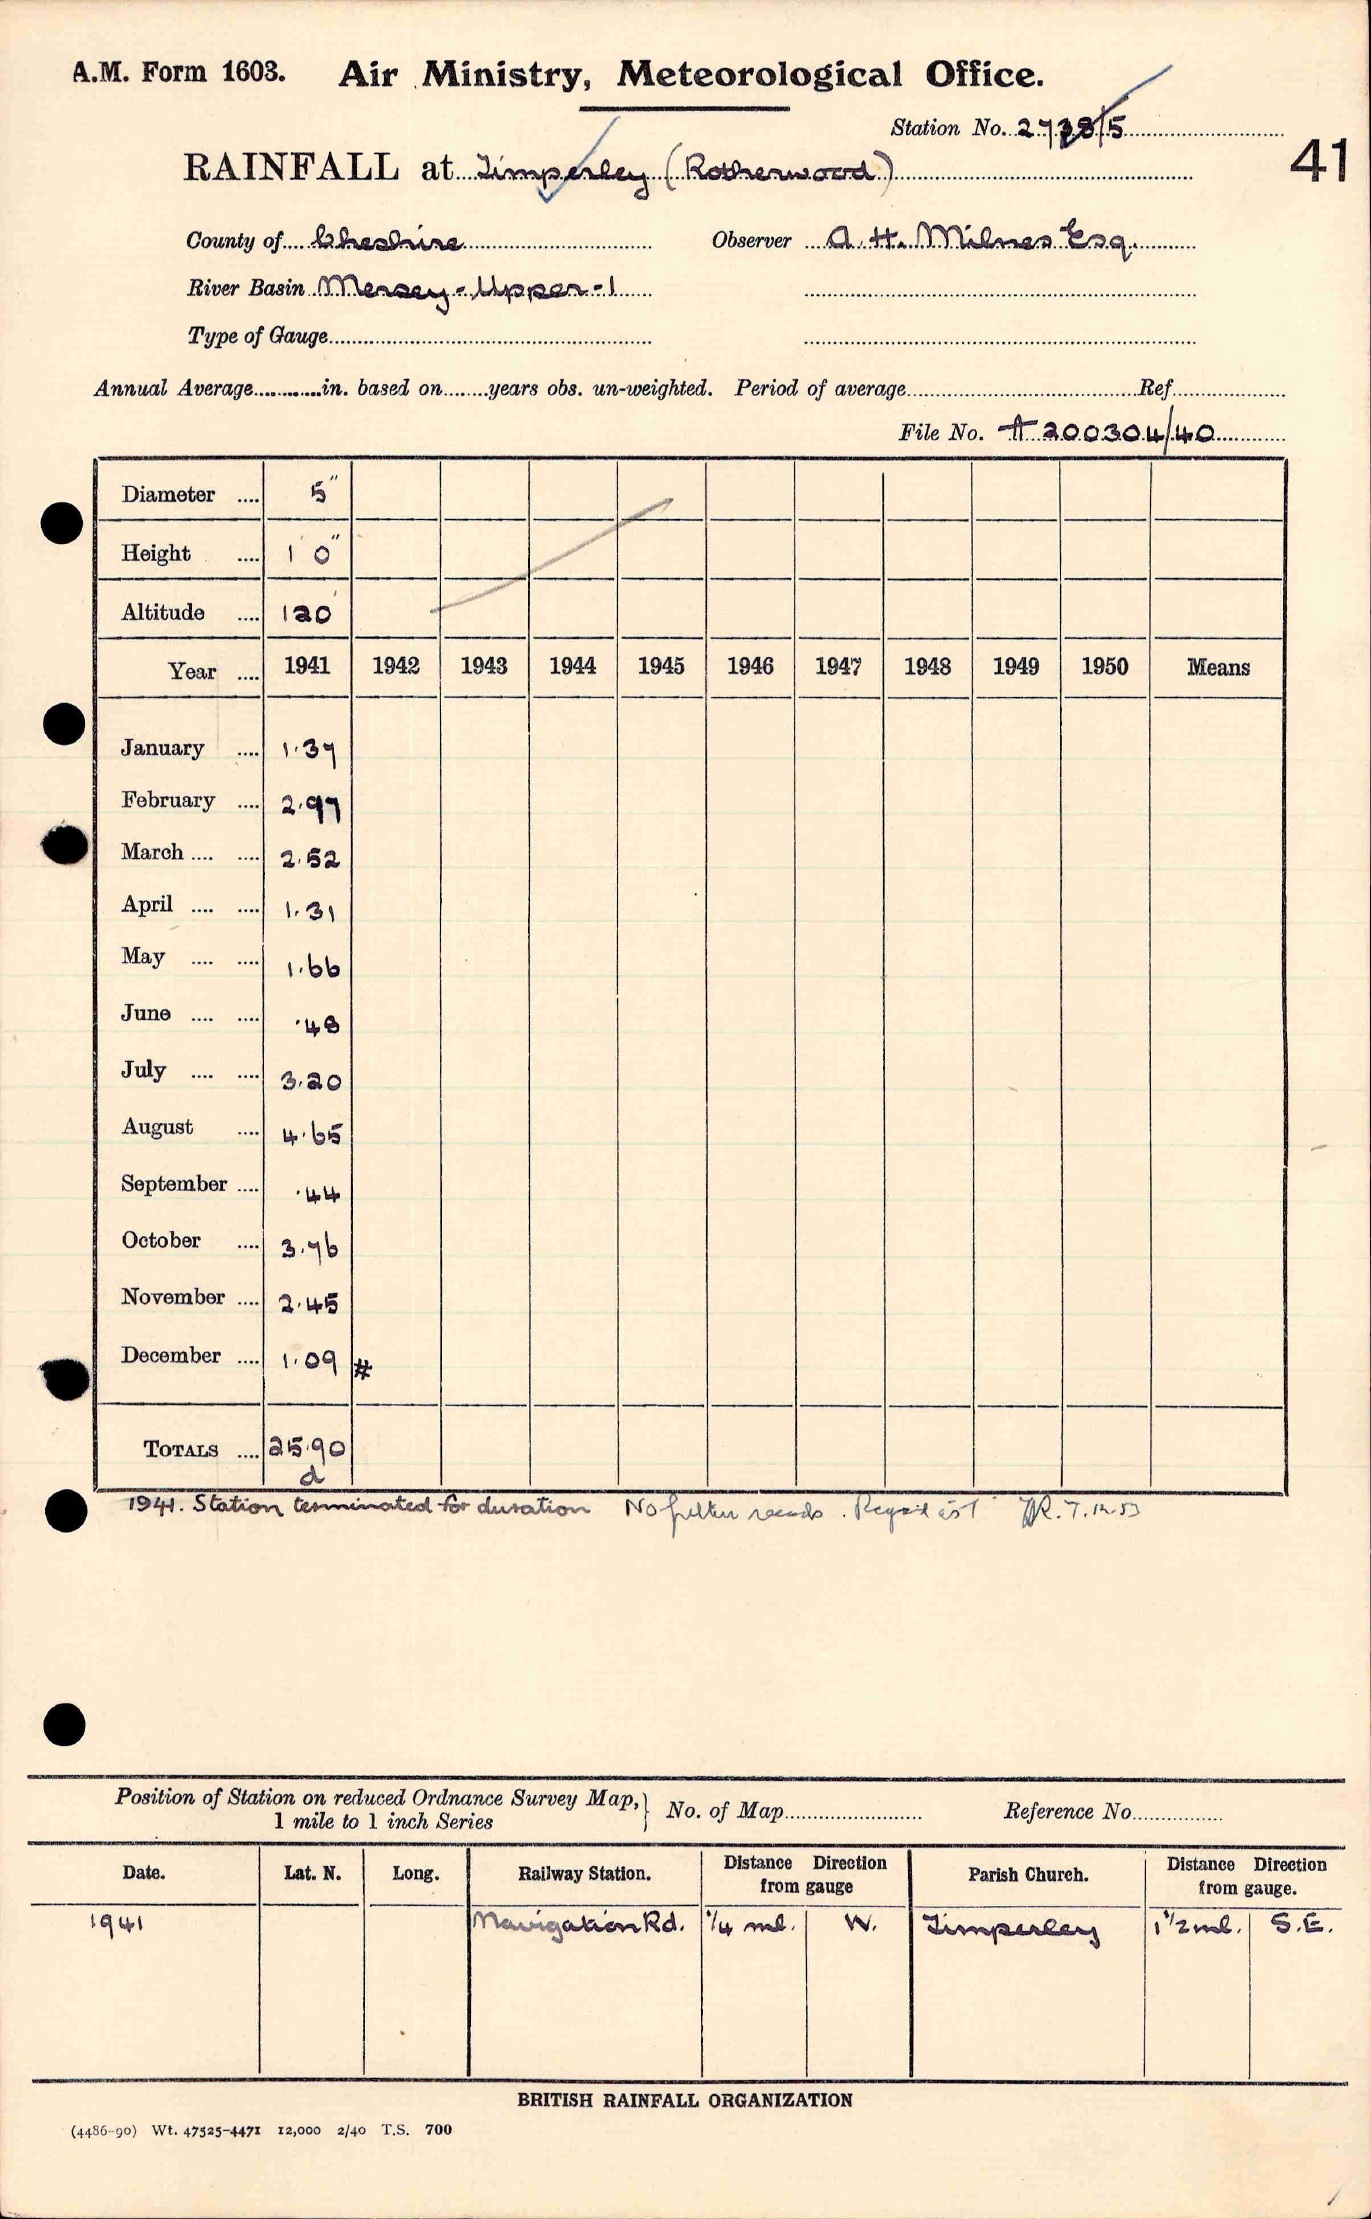 A.M. Form 1603. Air Ministry, Meteorological Office.
Station No. 2738/5
41
RAINFALL at Timperley (Rotherwood)
County of Cheshire Observer A. H. Milnes Esq.
River Basin Mersey-Upper-1
Type of Gauge
Annual Average in. based on years obs. un-weighted. Period of average Ref
File No. A 200304/40
Diameter .... 5"
Height .... 1' 0"
Altitude .... 120'
Year .... 1941 1942 1943 1944 1945 1946 1947 1948 1949 1950 Means
January .... 1.37
February .... 2.97
March .... .... 2.52
April .... .... 1.31
May .... .... 1.66
June .... .... .48
July .... .... 3.20
August .... 4.65
September .... .44
October .... 3.76
November .... 2.45
December .... 1.09 #
TOTALS .... 25.90
d
1941. Station terminated for duration No further records. 7.12.53
Position of Station on reduced Ordnance Survey Map, 1 mile to 1 inch Series } No. of Map Reference No
Date. Lat. N. Long. Railway Station. Distance Direction from gauge Parish Church. Distance Direction from gauge.
1941 Navigation Rd. 1/4 ml. W. Timperley 1 1/2 ml. S.E.
BRITISH RAINFALL ORGANIZATION
(4486-90) Wt. 47525-4471 12,000 2/40 T.S. 700